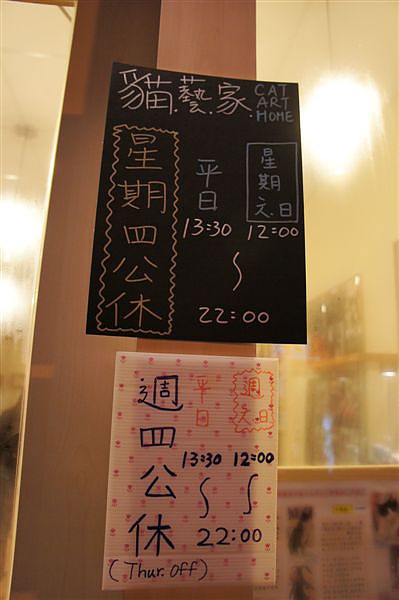 貓.藝.家.
CAT
ART
HOME
星期四公休
平日
13:30
星期六.日
12:00
~
22:00
週四公休
(Thur. Off)
平日
13:30
週六日
12:00
~ ~
22:00